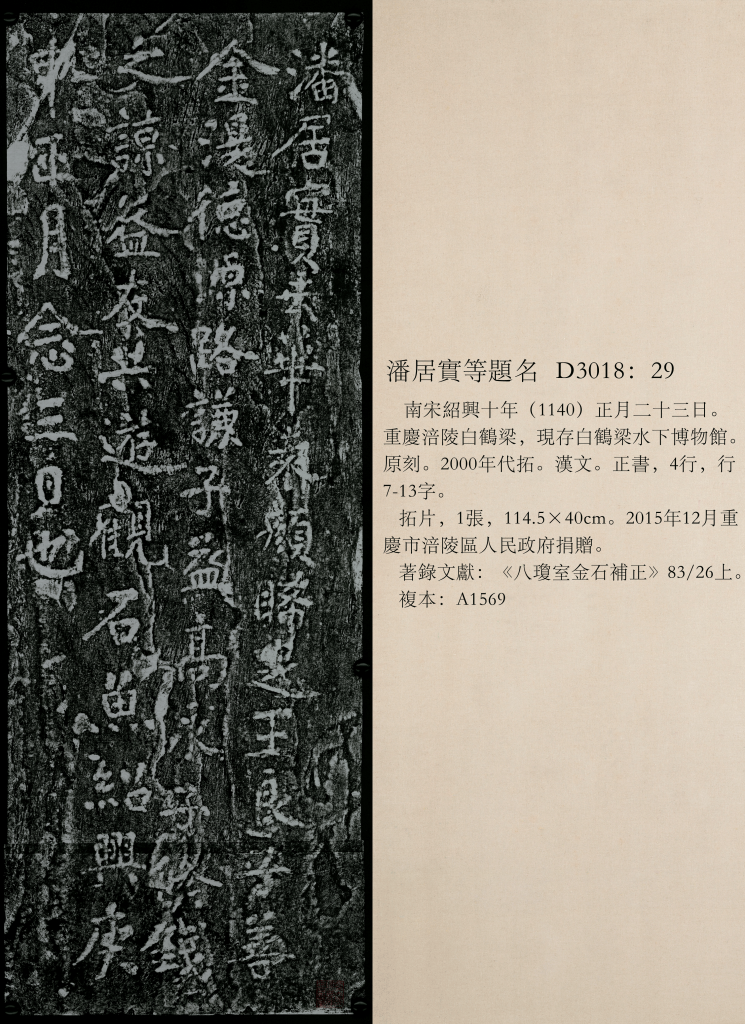 潘居實去華頫晞是王良善
金漫德源路謙子益高永子修
之諒益友共遊觀石魚紹興庚
申正月念三日也
潘居實等題名 D3018：29
南宋紹興十年（1140）正月二十三日。
重慶涪陵白鶴梁，現存白鶴梁水下博物館。
原刻。2000年代拓。漢文。正書，4行，行
7-13字。
拓片，1張，114.5×40cm。2015年12月重
慶市涪陵區人民政府捐贈。
著錄文獻：《八瓊室金石補正》83/26上。
複本：A1569